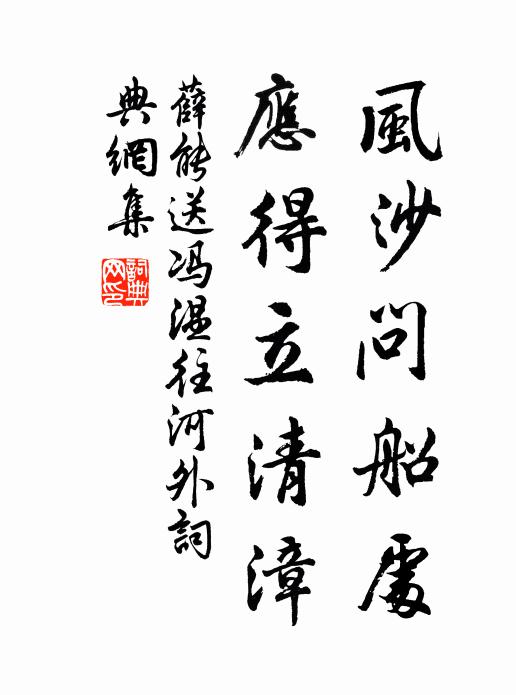 風沙問船處
應得立清漳
薛能送冯溫往河外詞
典網集
詞典
网印